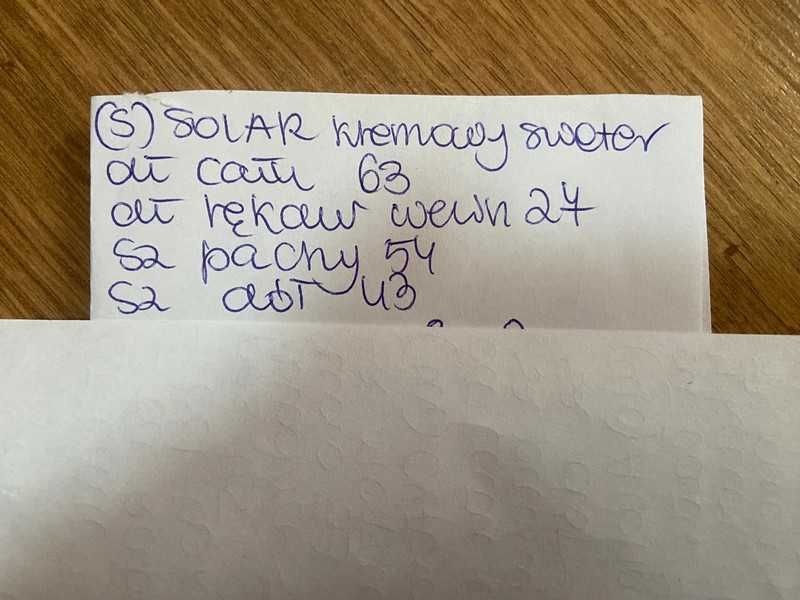 (S) SOLAR kremowy sweter
dł całk 63
dł rękaw wewn 27
sz pachy 54
sz dół 43